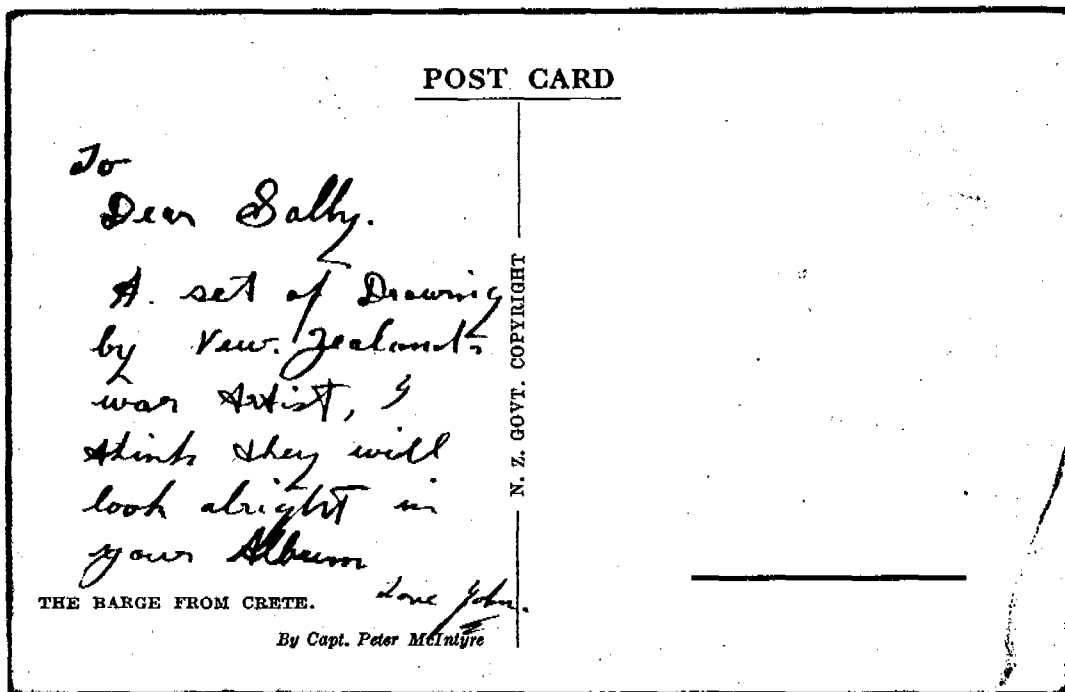 POST CARD
To
Dear Sally.
A. set of Drawing
by New. Zealands
war Artist, I
think they will
look alright in
your Album
Love John.
N. Z. GOVT. COPYRIGHT
THE BARGE FROM CRETE.
By Capt. Peter McIntyre